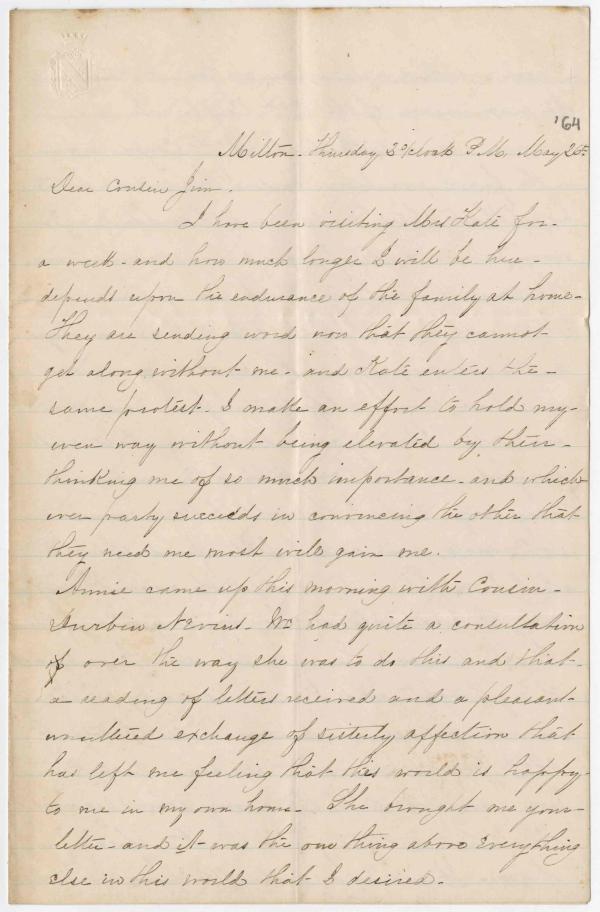 '64
Milton - Thursday 3 o'clock P.M. May 26th
Dear Cousin Jim.
I have been visiting Mrs Kate for -
a week - and how much longer I will be here -
depends upon the endurance of the family at home -
They are sending word now that they cannot
get along without me - and Kate enters the -
same protest. I make an effort to hold my
even way without being elevated by their -
thinking me of so much importance - and which
ever party succeeds in convincing the other that
they need me most will gain me.
Annie came up this morning with Cousin -
Durbin Nevius - We had quite a consultation
over the way she was to do this and that -
a reading of letters received and a pleasant -
unuttered exchange of sisterly affection that
has left me feeling that this world is happy
to me in my own home - She brought me your
letter - and it was the one thing above everything
else in this world that I desired -